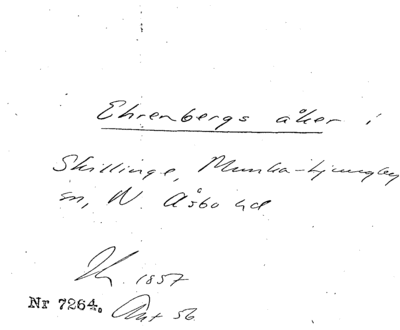 Ehrenbergs åker i
Skillinge, Munka-Ljungby
sn, N. Åsbo hd
1857
Nr 7264. Akt 56